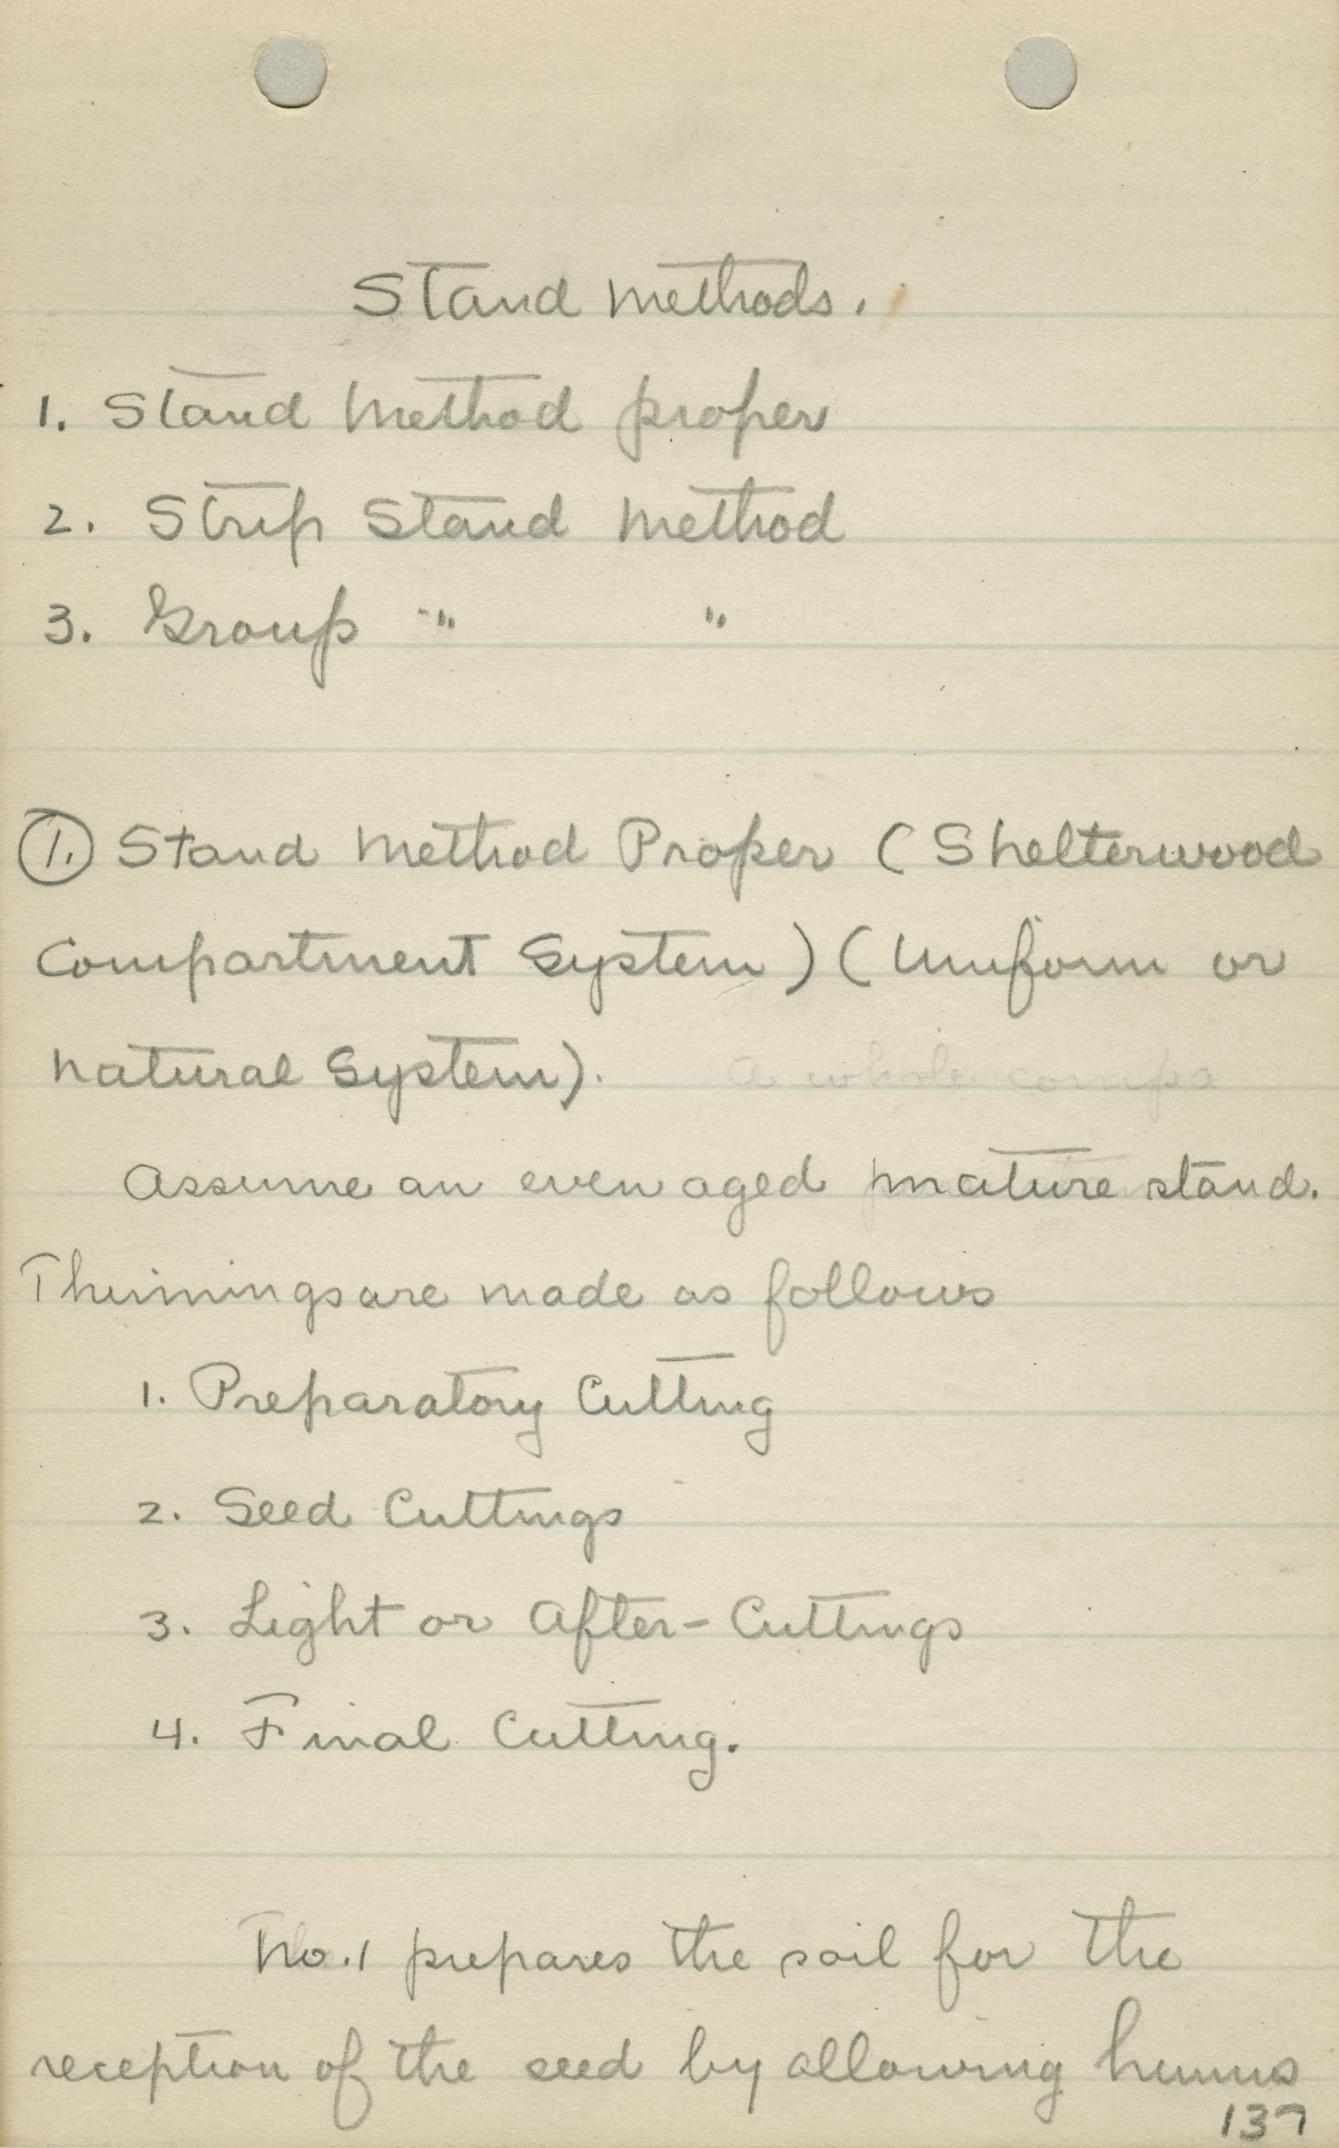 Stand Methods.
1. Stand Method proper
2. Strip Stand Method
3. Group " "
1. Stand Method Proper (Shelterwood
Compartment System) (Uniform or
Natural System).
a whole compa
Assume an even aged mature stand.
Thinnings are made as follows
1. Preparatory Cutting
2. Seed Cuttings
3. Light or After-Cuttings
4. Final Cutting.
No. 1 prepares the soil for the
reception of the seed by allowing humus
137